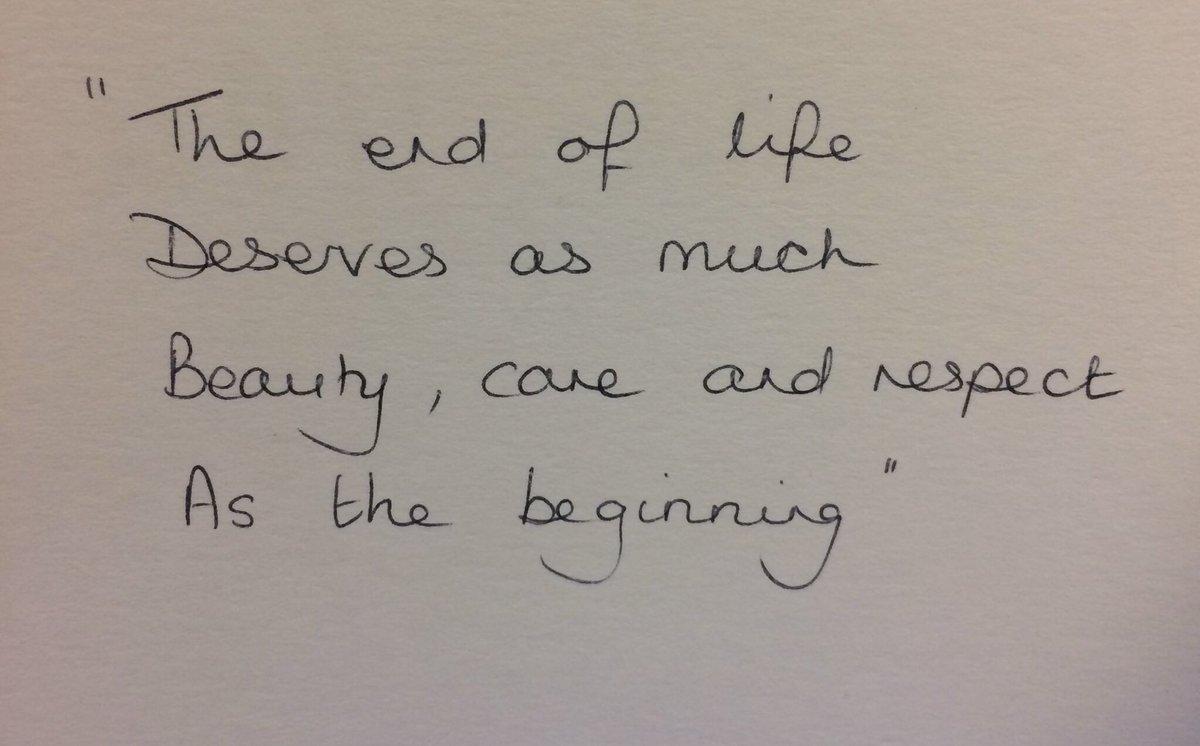 "The end of life
Deserves as much
Beauty, care and respect
As the beginning"